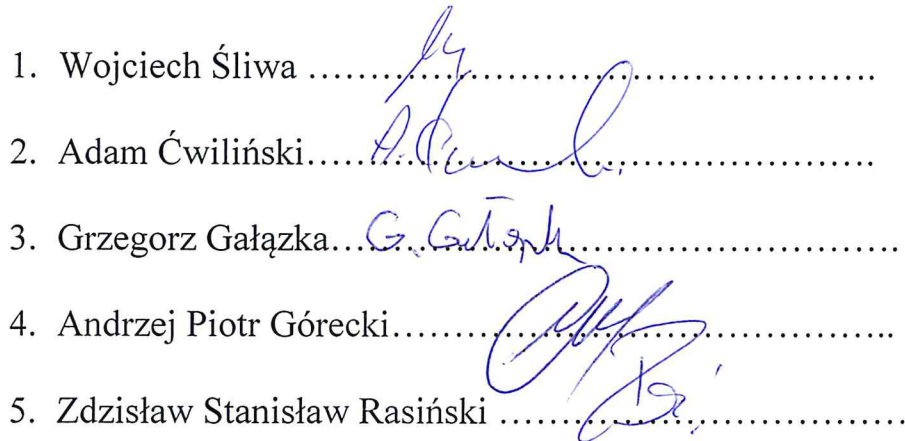 1. Wojciech Śliwa ……………………………………………….
2. Adam Ćwiliński……………………………………………….
3. Grzegorz Gałązka……………………………………………….
4. Andrzej Piotr Górecki…………………………………………..
5. Zdzisław Stanisław Rasiński …………………………………